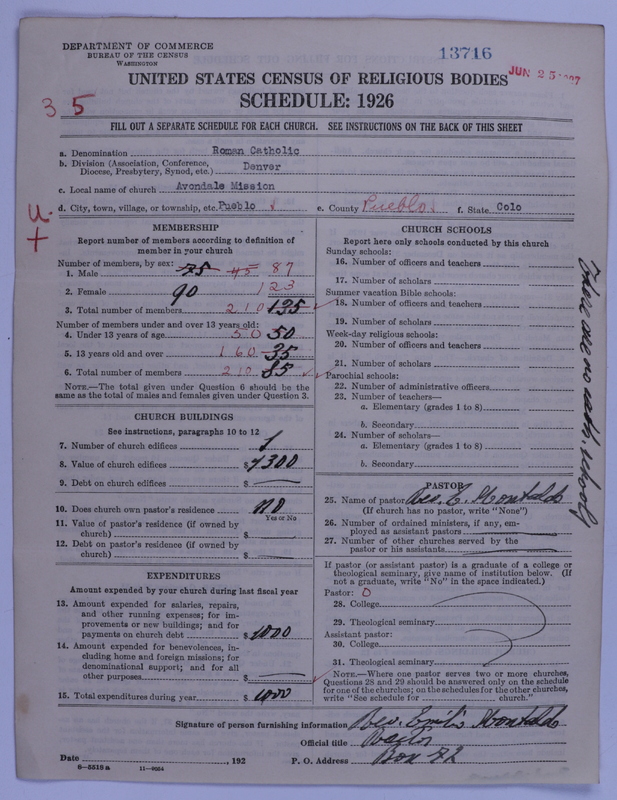 DEPARTMENT OF COMMERCE
BUREAU OF THE CENSUS
WASHINGTON
13716
JUN 25
UNITED STATES CENSUS OF RELIGIOUS BODIES
SCHEDULE: 1926
35
FILL OUT A SEPARATE SCHEDULE FOR EACH CHURCH. SEE INSTRUCTIONS ON THE BACK OF THIS SHEET
a. Denomination Roman Catholic
b. Division (Association, Conference, Diocese, Presbytery, Synod, etc.) Denver
c. Local name of church Avondale Mission
d. City, town, village, or township, etc. Pueblo e. County Pueblo f. State Colo
U.
+
MEMBERSHIP
Report number of members according to definition of
member in your church
Number of members, by sex:
1. Male 75 45 87
2. Female 90 123
3. Total number of members 210 135
Number of members under and over 13 years old:
4. Under 13 years of age 50 50
5. 13 years old and over 160 35
6. Total number of members 210 85
NOTE.—The total given under Question 6 should be the
same as the total of males and females given under Question 3.
CHURCH BUILDINGS
See instructions, paragraphs 10 to 12
7. Number of church edifices 1
8. Value of church edifices $ 7300
9. Debt on church edifices $
10. Does church own pastor's residence? no
Yes or No
11. Value of pastor's residence (if owned by
church) $
12. Debt on pastor's residence (if owned by
church) $
EXPENDITURES
Amount expended by your church during last fiscal year
13. Amount expended for salaries, repairs,
and other running expenses; for im-
provements or new buildings; and for
payments on church debt $ 1000
14. Amount expended for benevolences, in-
cluding home and foreign missions; for
denominational support; and for all
other purposes $
15. Total expenditures during year $ 1000
CHURCH SCHOOLS
Report here only schools conducted by this church
Sunday schools:
16. Number of officers and teachers
17. Number of scholars
Summer vacation Bible schools:
18. Number of officers and teachers
19. Number of scholars
Week-day religious schools:
20. Number of officers and teachers
21. Number of scholars
Parochial schools:
22. Number of administrative officers
23. Number of teachers—
a. Elementary (grades 1 to 8)
b. Secondary
24. Number of scholars—
a. Elementary (grades 1 to 8)
b. Secondary
There are no cath. schools
PASTOR
25. Name of pastor Rev. E. Montaldo
(If church has no pastor, write "None")
26. Number of ordained ministers, if any, em-
ployed as assistant pastors
27. Number of other churches served by the
pastor or his assistants
If pastor (or assistant pastor) is a graduate of a college or
theological seminary, give name of institution below. (If
not a graduate, write "No" in the space indicated.)
Pastor: 0
28. College
29. Theological seminary
Assistant pastor:
30. College
31. Theological seminary
NOTE.—Where one pastor serves two or more churches,
Questions 28 and 29 should be answered only on the schedule
for one of the churches; on the schedules for the other churches,
write "See schedule for church."
Signature of person furnishing information Rev. Emilio Montaldo
Official title Rector
Date , 192 P. O. Address Box 72
6-5518 a 11-9054